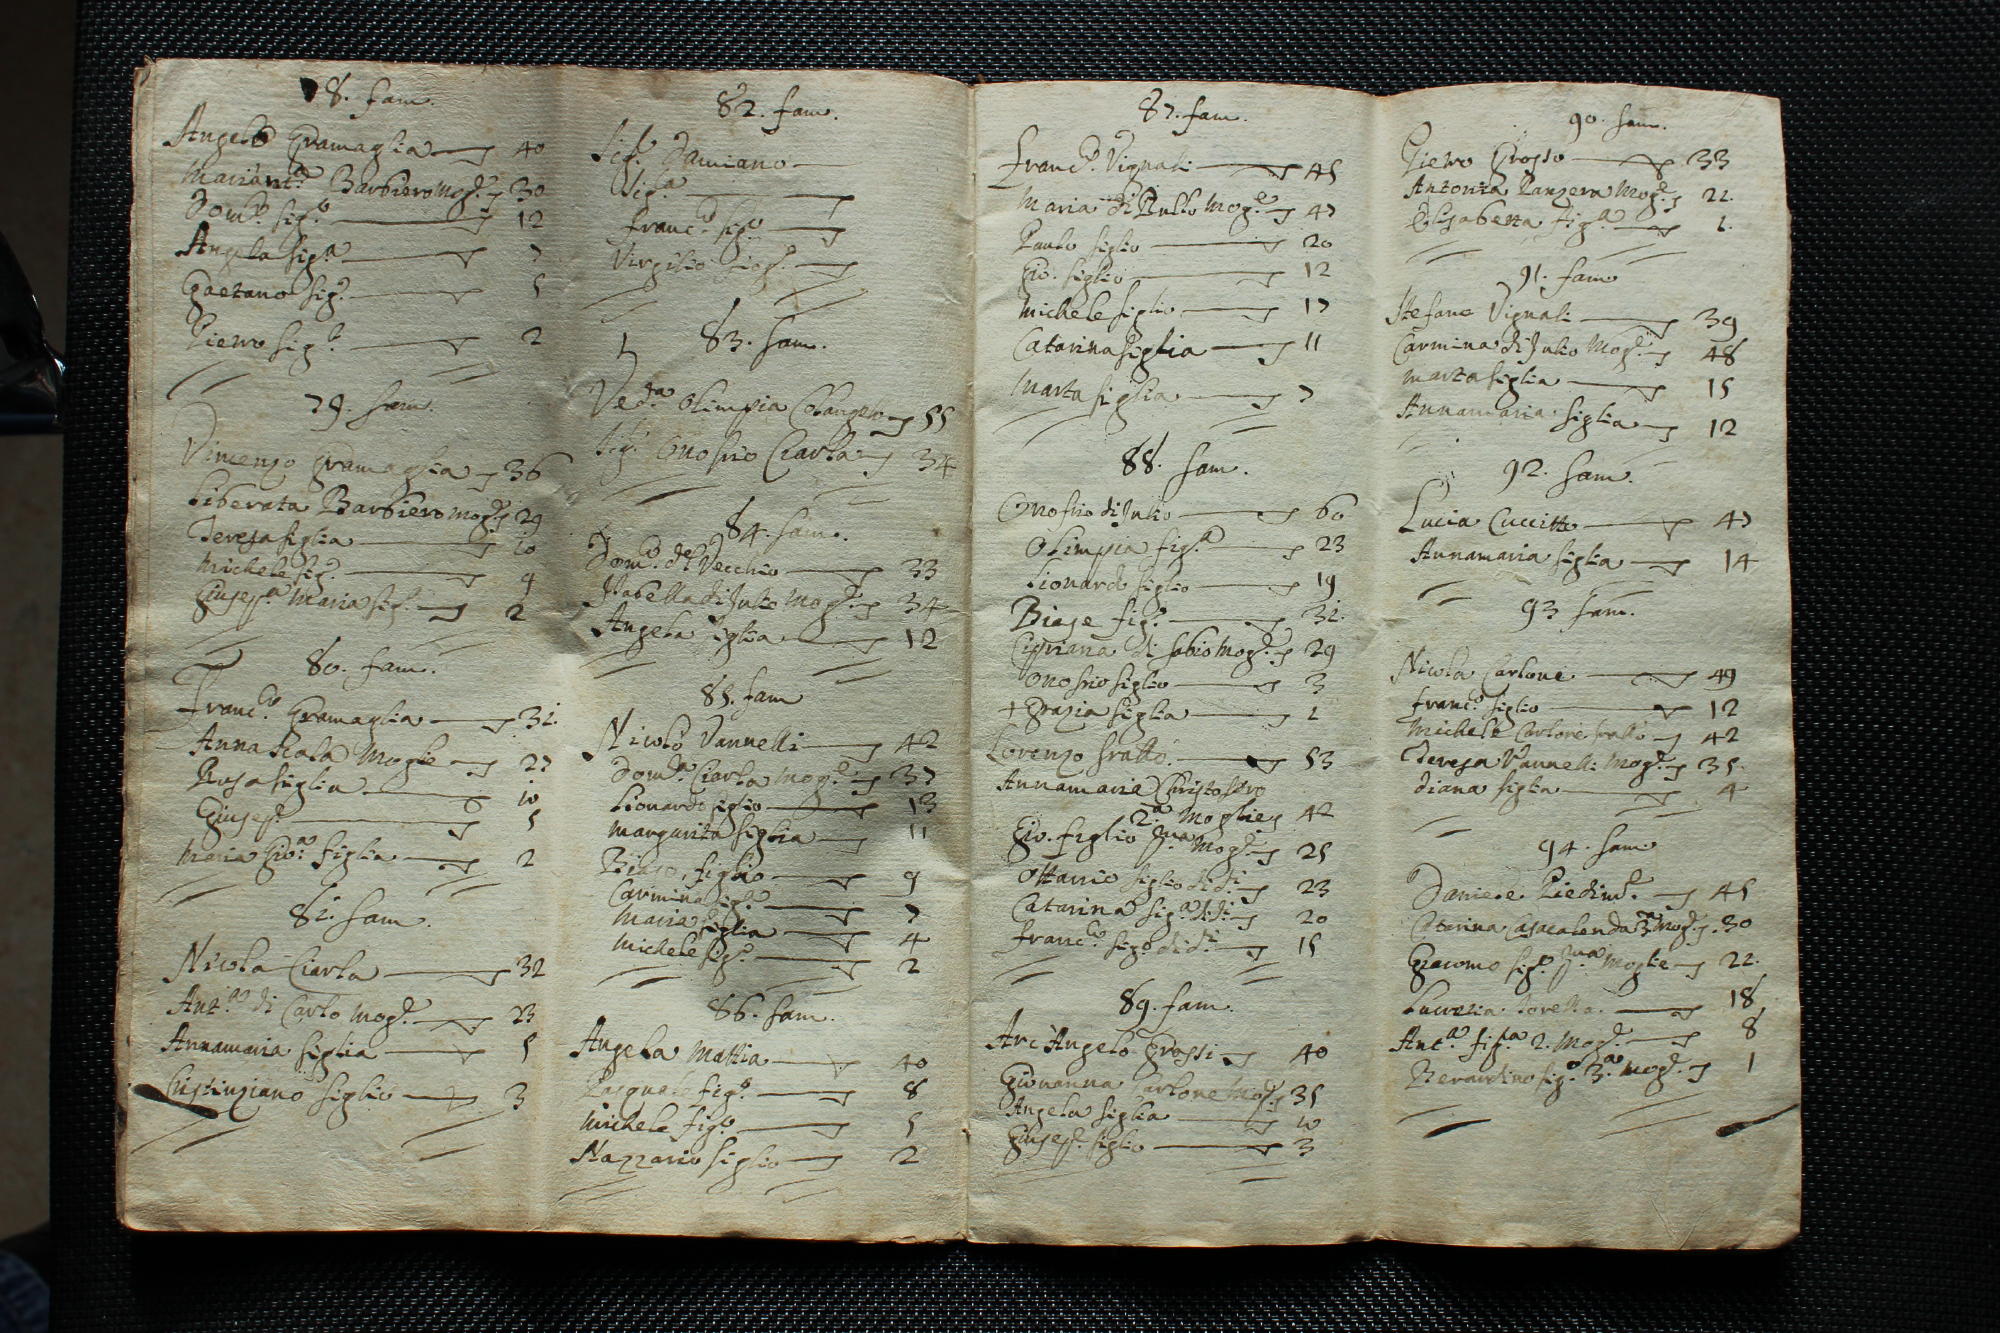 78. fam.
Angelo Gramaglia 40
Mariant.ª Barbiero mog.e 30
Dom.co fig.o 12
Angela fig.ª 7
Gaetano fig.o 5
Pietro fig.o 2
79. fam.
Vincenzo Gramaglia 36
Liberata Barbiero mog.e 29
Teresa figlia 10
Michele fig.o 9
Giusepp.ª Maria fig.ª 2
80. fam.
Franc.o Gramaglia 31.
Anna Scala Moglie 27
Rosa figlia 10
Giusep.e 5
Maria Gio.ª figlia 2
81. fam.
Nicola Ciarla 32
Ant.ª di Carlo mog.e 23
Annamaria figlia 5
Cristinziano figlio 3
82. fam.
Sig.r Damiano
Sig.ra
Franc.o fig.o
Virgilio
83. fam.
Ved.ª Olimpia Colangelo 55
fig.o Onofrio Ciarla 34
84. fam.
Dom.co del Vecchio 33
Isabella di Julio Mog.e 34
Angela figlia 12
85. fam
Nicolò Vannelli 42
Dom.ca Ciarla mog.e 37
Lionardo figlio 13
Margarita figlia 11
Biaso, figlio 9
Carmina fig.ª 7
Maria figlia 4
Michele fig.o 2
86. fam.
Angela Mattia 40
Pasquale fig.o 8
Michele fig.o 5
Nazzario figlio 2
87. fam.
Franc.o Vignali 45
Maria di Rullo Mog.e 47
Paulo figlio 20
Gio. figlio 12
Michele figlio 17
Catarina figlia 11
Marta figlia 7
88. fam.
Onofrio di Julio 60
Olimpia fig.ª 23
Lionardo figlio 19
Biase fig.o 31.
Cipriana di Fabio Mog.e 29
Onofrio figlio 3
+ Grazia figlia 1
Lorenzo fratto. 53
Annamaria Christofaro
2.ª Moglie 42
Gio. figlio p.ma Mog.e 25
Ottavio figlio di d.i 23
Catarina fig.ª di d.i 20
Franc.o fig.o di d.i 15
89. fam.
Arc'Angelo Grossi 40
Giovanna Carlone Mog.e 35
Angela figlia 10
Giusep.e figlio 3
90. fam.
Pietro Grosso 33
Antonia Panzera Mog.e 21.
Elisabetta fig.ª 1.
91. fam
Stefano Vignali 39
Carmina di Julio Mog.e 48
Marta figlia 15
Annamaria figlia 12
92. fam.
Lucia Cuccitto 47
Annamaria figlia 14
93 fam.
Nicola Carlone 49
Franc.o figlio 12
Michele Carlone fratto 42
Teresa Vannelli Mog.e 35.
Diana figlia 4
94. fam
Daniele Piedim.e 45
Catarina Casacalenda 3ª Mog.e 30
Giacomo fig.o p.ma Moglie 21.
Lucrezia Torella. 18
Ant.ª fig.ª 2. Mog.e 8
Berardino fig.o 3.ª mog.e 1